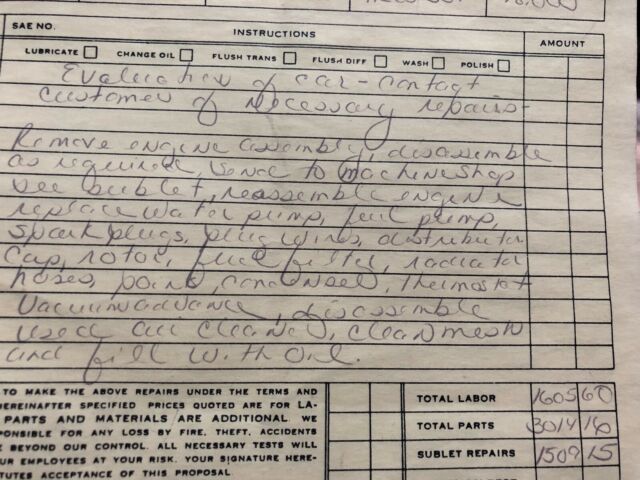 SAE NO.
INSTRUCTIONS
AMOUNT
LUBRICATE CHANGE OIL FLUSH TRANS FLUSH DIFF WASH POLISH
Evaluation of car - contact
customer of necessary repairs-
Remove engine assembly, disassemble
as required, send to machine shop
see sublet, reassemble engine
replace water pump, fuel pump,
spark plugs, plug wires, distributor
cap, rotor, fuel filter, radiator
hoses, points, condenser, thermostat
vacuum advance, disassemble
used air cleaner, clean mesh
and fill with oil.
TO MAKE THE ABOVE REPAIRS UNDER THE TERMS AND
HEREINAFTER SPECIFIED PRICES QUOTED ARE FOR LA-
PARTS AND MATERIALS ARE ADDITIONAL. WE
PONSIBLE FOR ANY LOSS BY FIRE, THEFT, ACCIDENTS
BEYOND OUR CONTROL. ALL NECESSARY TESTS WILL
UR EMPLOYEES AT YOUR RISK. YOUR SIGNATURE HERE-
TUTES ACCEPTANCE OF THIS PROPOSAL.
TOTAL LABOR 1605 60
TOTAL PARTS 3014 16
SUBLET REPAIRS 1509 15